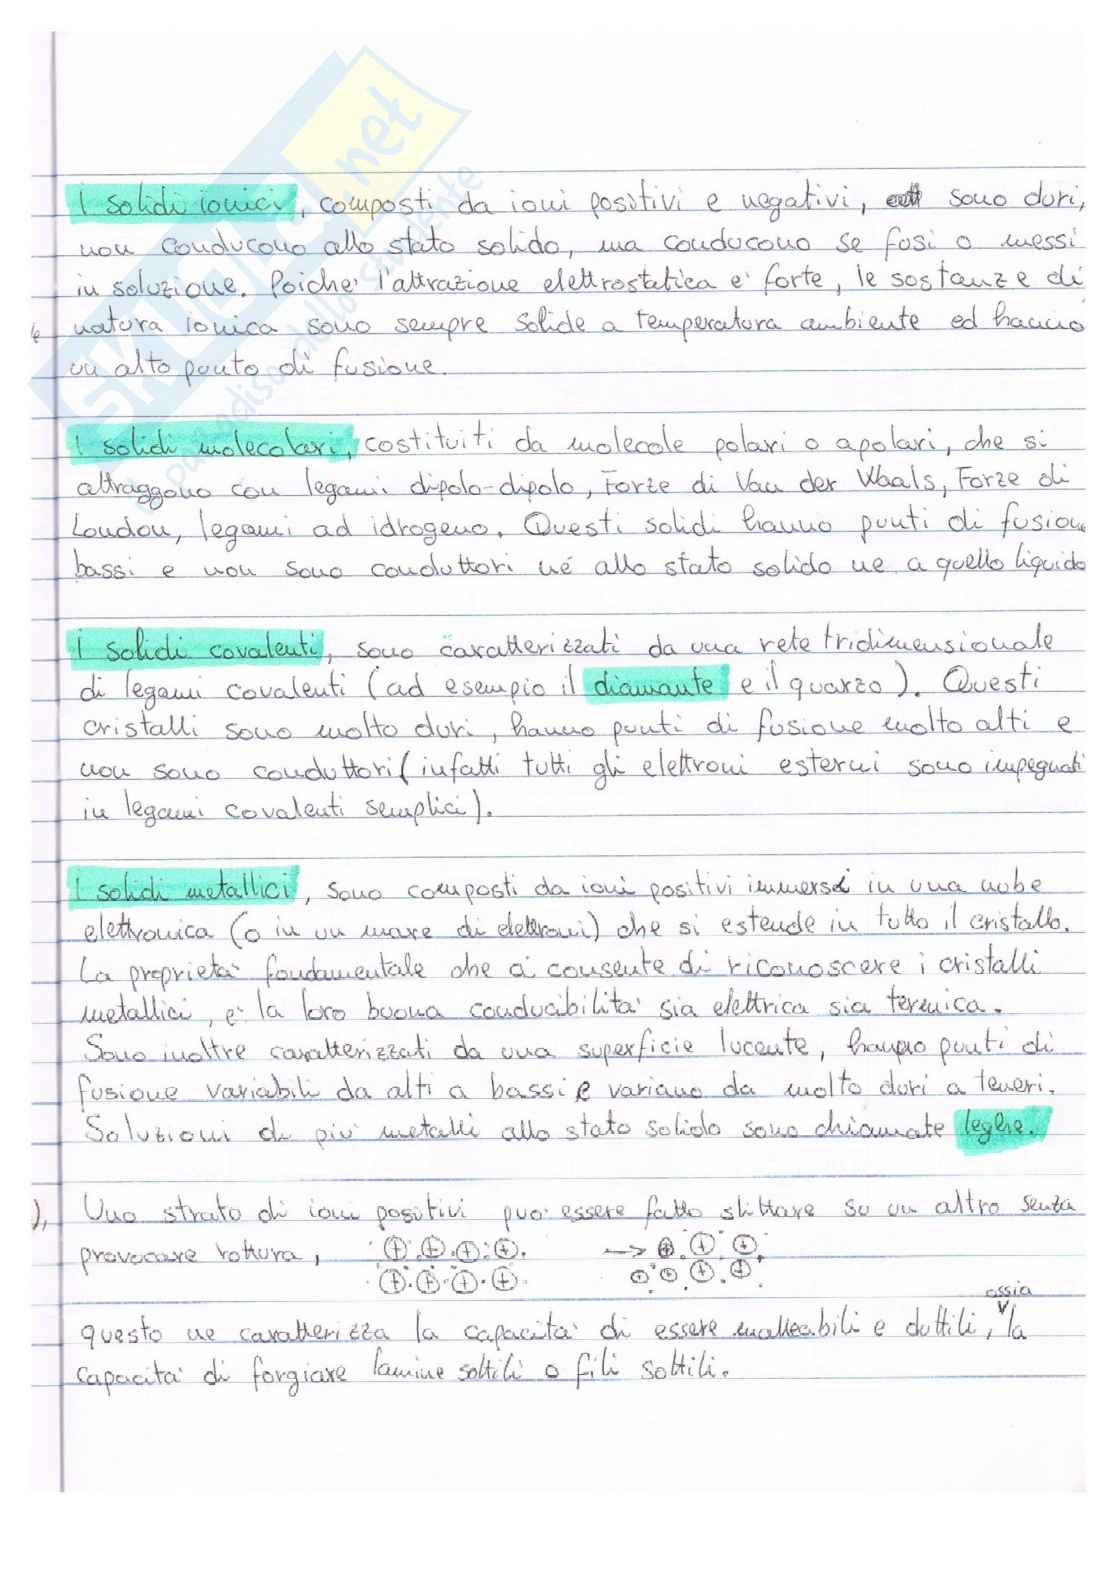 SKUOLA.net
paradiso dello studente
I solidi ionici, composti da ioni positivi e negativi, sono duri,
non conducono allo stato solido, ma conducono se fusi o messi
in soluzione. Poiche' l'attrazione elettrostatica e' forte, le sostanze di
natura ionica sono sempre solide a temperatura ambiente ed hanno
un alto punto di fusione.
I solidi molecolari, costituiti da molecole polari o apolari, che si
attraggono con legami dipolo-dipolo, Forze di Van der Waals, Forze di
London, legami ad idrogeno. Questi solidi hanno punti di fusione
bassi e non sono conduttori né allo stato solido ne a quello liquido
I solidi covalenti, sono caratterizzati da una rete tridimensionale
di legami covalenti (ad esempio il diamante e il quarzo). Questi
cristalli sono molto duri, hanno punti di fusione molto alti e
non sono conduttori (infatti tutti gli elettroni esterni sono impegnati
in legami covalenti semplici).
I solidi metallici, sono composti da ioni positivi immersi in una nube
elettronica (o in un mare di elettroni) che si estende in tutto il cristallo.
La proprieta' fondamentale che ci consente di riconoscere i cristalli
metallici, e' la loro buona conducibilita' sia elettrica sia termica.
Sono inoltre caratterizzati da una superficie lucente, hanno punti di
fusione variabili da alti a bassi e variano da molto duri a teneri.
Soluzioni di piu' metalli allo stato solido sono chiamate leghe.
Uno strato di ioni positivi puo' essere fatto slittare su un altro senza
provocare rottura, + + + + → + + +
+ + + + + + + +
ossia
questo ne caratterizza la capacita' di essere malleabili e duttili, la
capacita' di forgiare lamine sottili o fili sottili.